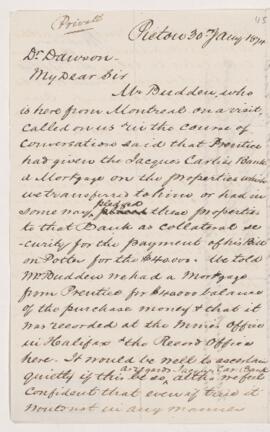 Private
45
Pictou 30 Jany 1874
Dr. Dawson
My Dear Sir
Mr Budden, who
is here from Montreal on a visit,
called on us & in the course of
conversation said that Prentice
had given the Jacques Cartier Bank
a Mortgage on the properties which
we transferred to him or had in
some way pledged these properties
to that Bank as collateral se-
curity for the payment of his Bill
on Potter for the $4000. We told
Mr Budden we had a Mortgage
from Prentice for $40000 balance
of the purchase money & that it
was recorded at the Mines Office
in Halifax & the Record Office
here. It would be well to ascertain
quietly if this be so, as regards Jacques Car. Bank
altho we feel
confident that even if true it
would not in any manner